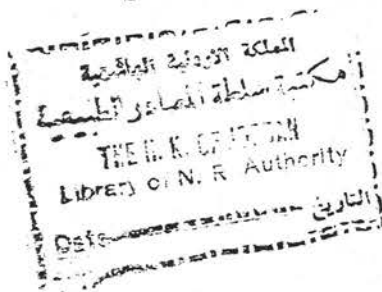 المملكة الأردنية الهاشمية
مكتبة سلطة المصادر الطبيعية
THE H. K. OF JORDAN
Library of N. R Authority
Date التاريخ